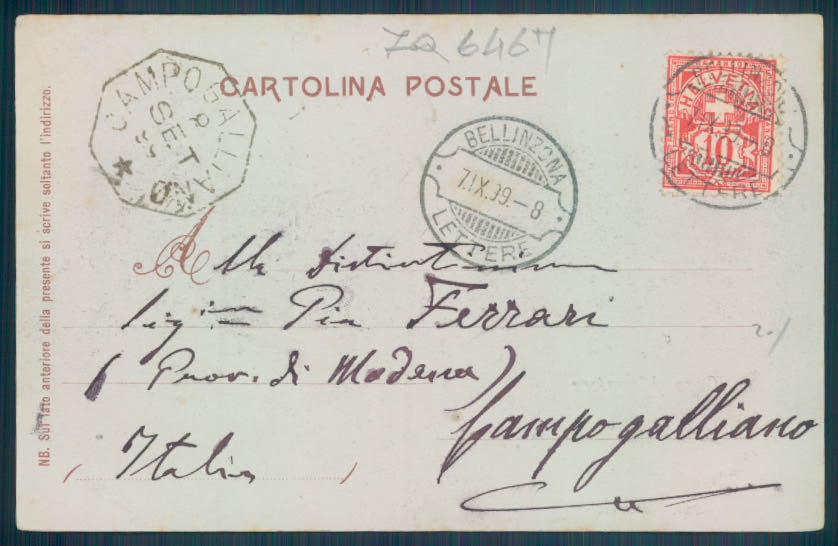 ZQ 6467
CARTOLINA POSTALE
CAMPOGALLIANO
8
SET
BELLINZONA
7.IX.99.-8
LETTERE
HELVETIA
10
Alla Distint
Sigᵐᵃ Pia Ferrari
(Prov. di Modena)
Campogalliano
(Italia)
NB. Sul lato anteriore della presente si scrive soltanto l'indirizzo.